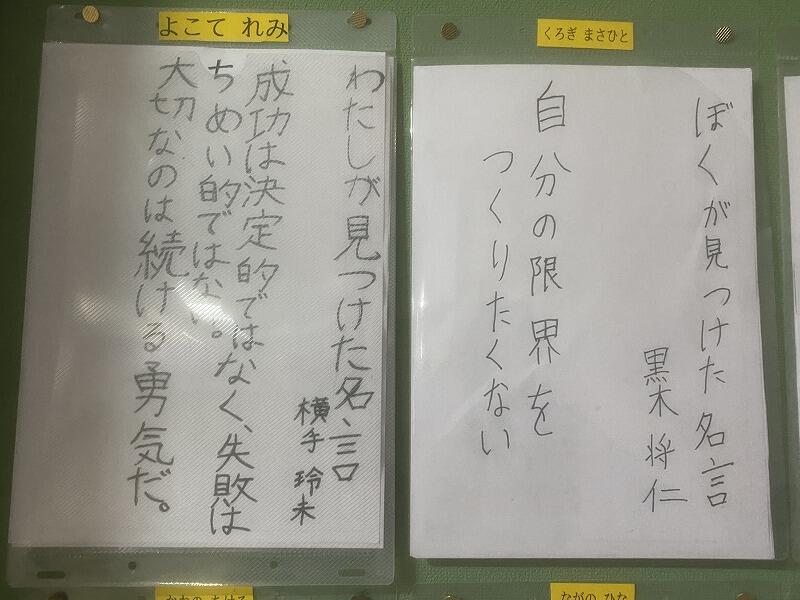 よこて れみ
わたしが見つけた名言
横手 玲未
成功は決定的ではなく、失敗は
ちめい的ではない。
大切なのは続ける勇気だ。
くろぎ まさひと
ぼくが見つけた名言
黒木 将仁
自分の限界を
つくりたくない
ながの ひな